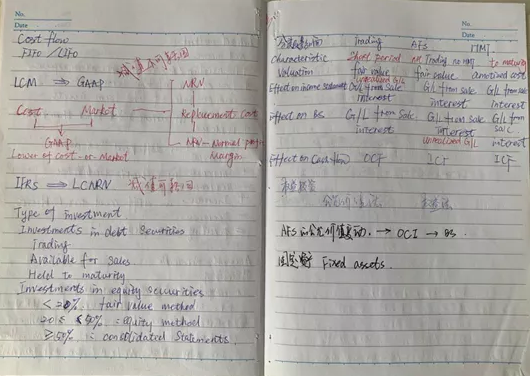 No.
Date
Cost flow
FIFO / LIFO
减值可转回
LCM ⇒ GAAP
NRV
Cost Market
Replacement cost
GAAP
NRV - Normal profit Margin
Lower of cost or Market
IFRS ⇒ LCNRV 减值可转回
Type of investment
Investments in debt Securities
Trading
Available for Sales
Held To maturity
Investments in equity securities
< 20% fair value method
20% ≤ 50% : equity method
≥ 50% : consolidated Statements
No.
Date
Trading AFS HTM
Characteristic Short period not Trading no HTM to maturity
Valuation fair value fair value amortized cost
unrealized G/L
Effect on income statement G/L from Sale G/L from Sale G/L from Sale
Interest Interest Interest
Effect on BS G/L from Sale G/L from Sale G/L from Sale
Interest Interest Interest
unrealized G/L
Effect on Cash flow OCF ICF ICF
AFS 公允价值变动 → OCI → BS.
Fixed assets.